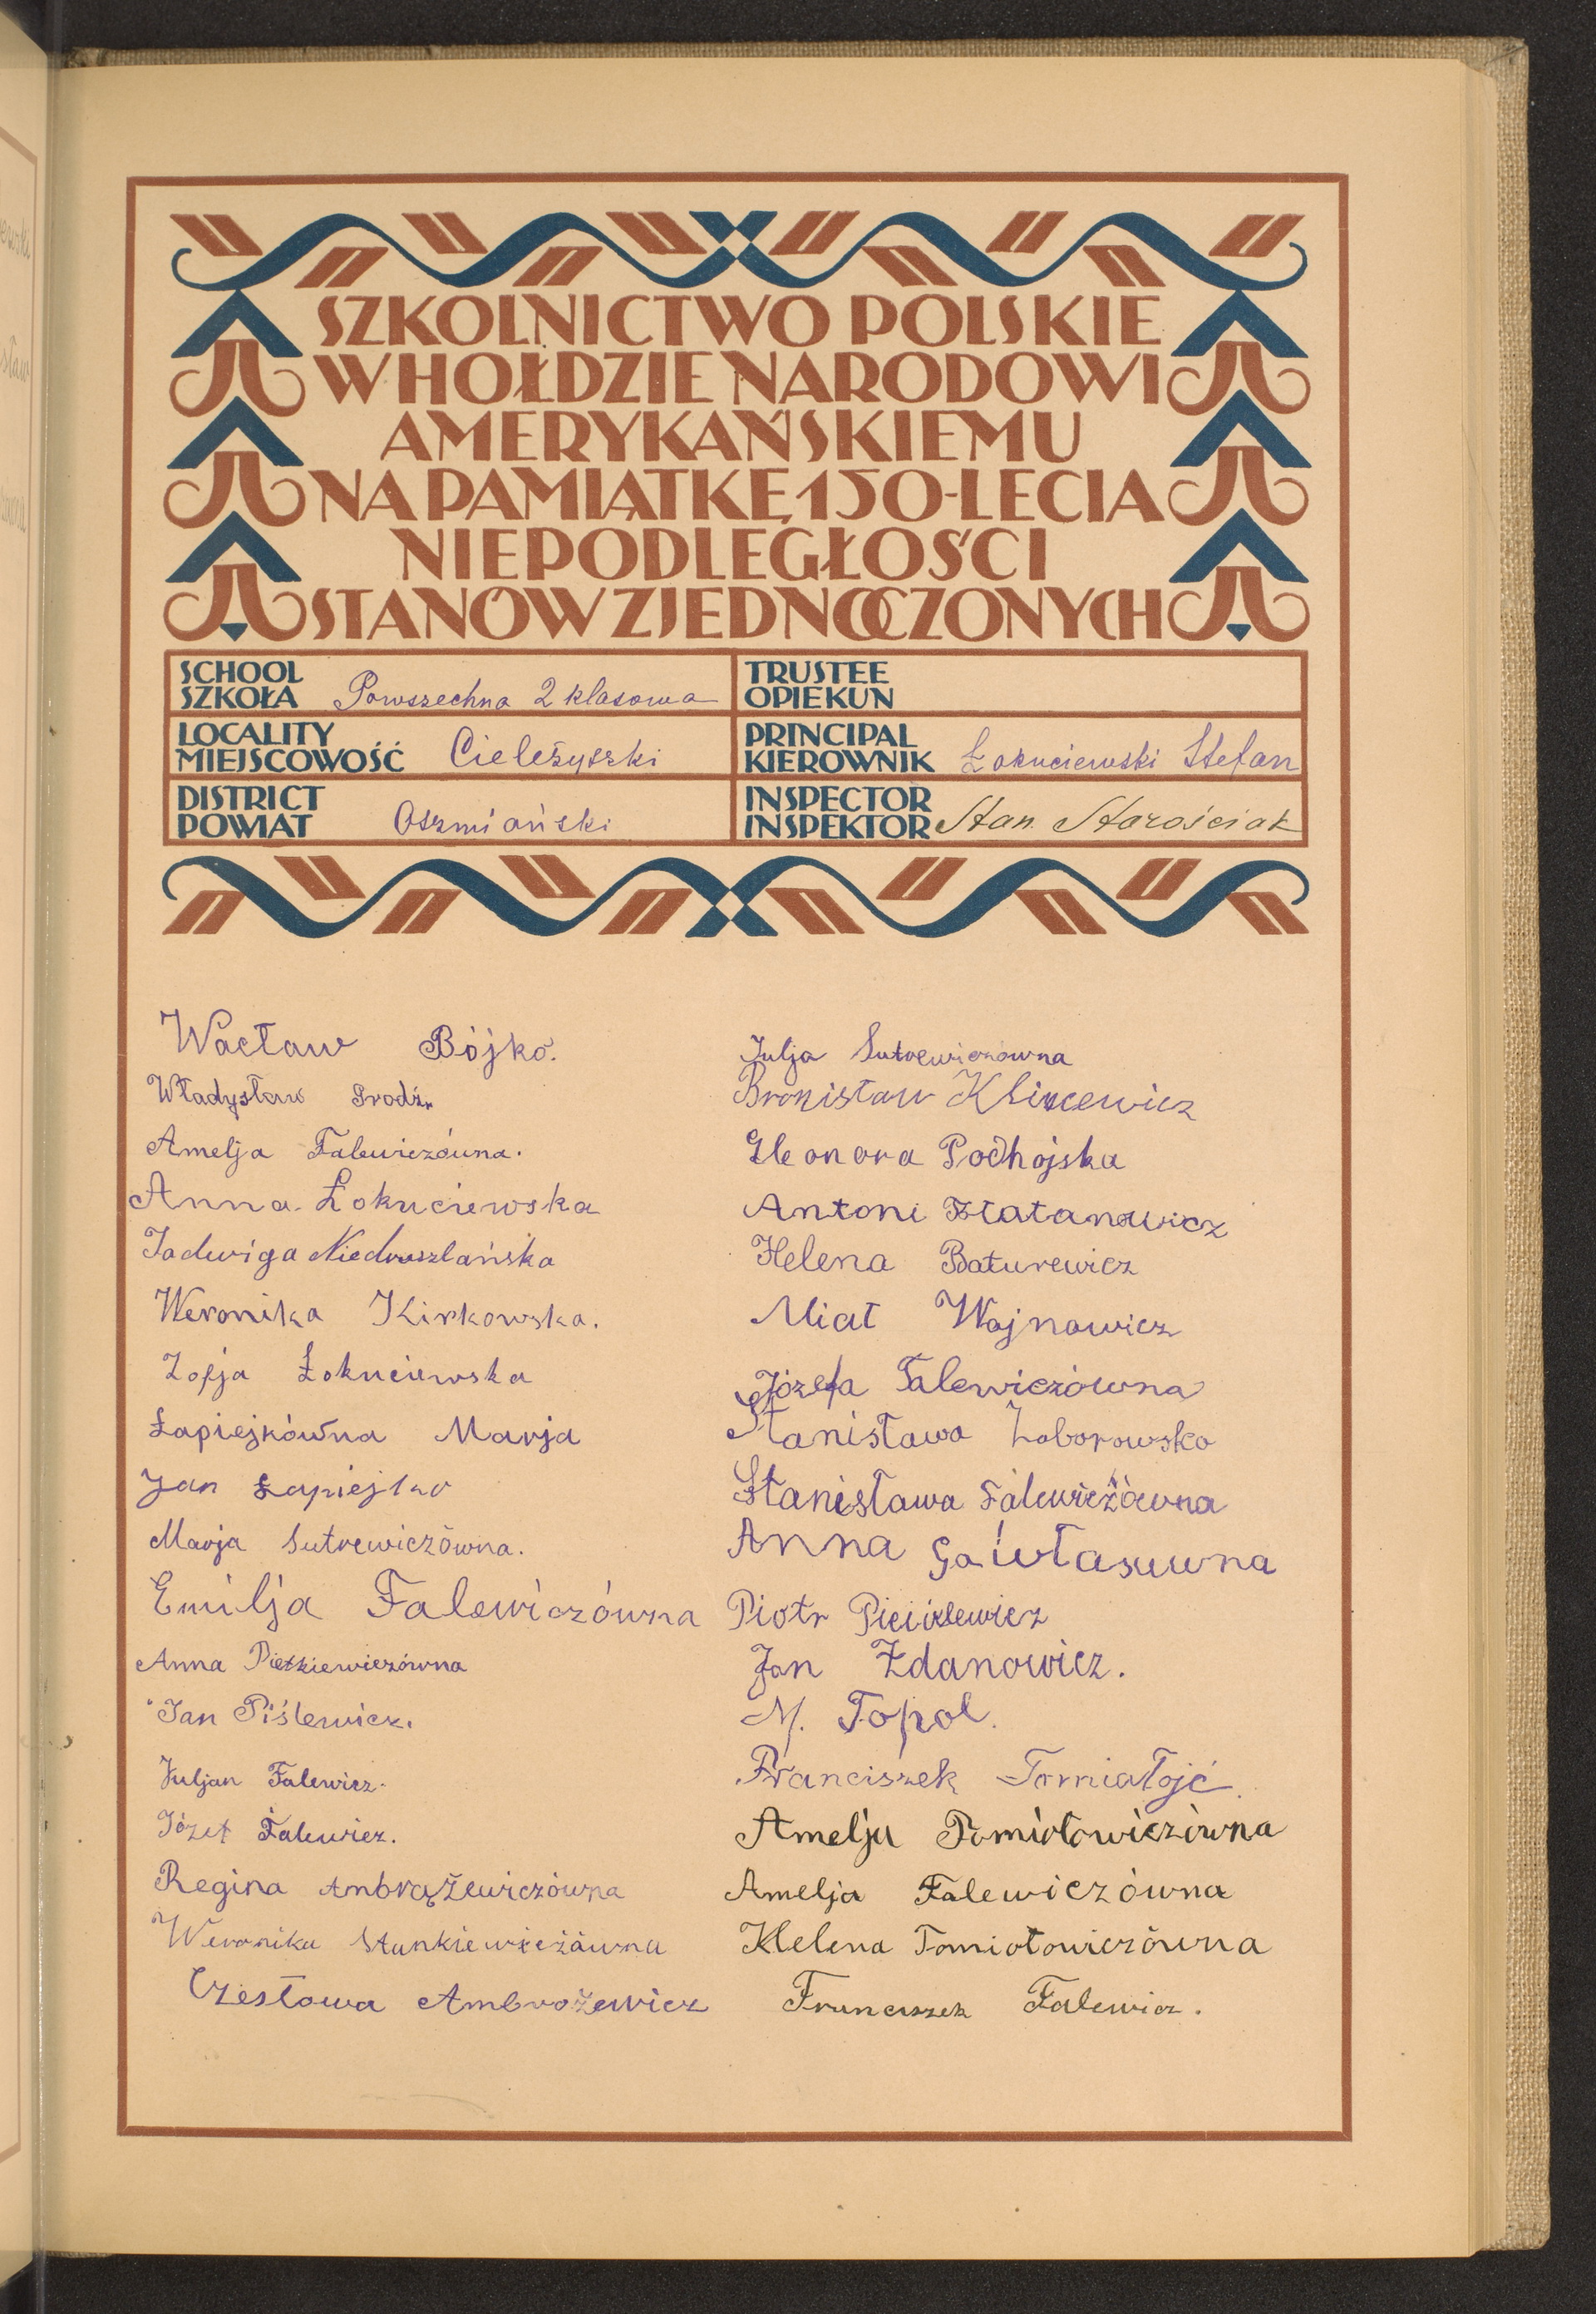 SZKOLNICTWO POLSKIE
W HOŁDZIE NARODOWI
AMERYKAŃSKIEMU
NA PAMIĄTKĘ 150-LECIA
NIEPODLEGŁOŚCI
STANÓW ZJEDNOCZONYCH
SCHOOL
SZKOŁA Powszechna 2 klasowa
TRUSTEE
OPIEKUN
LOCALITY
MIEJSCOWOŚĆ
PRINCIPAL
KIEROWNIK Łokuciewski Stefan
DISTRICT
POWIAT Oszmiański
INSPECTOR
INSPEKTOR Stan. Starościak
Wacław Bójko.
Władysław
Amelja Falewiczówna.
Anna Łokuciewska
Jadwiga
Weronika Kirkowska.
Zofja Łokuciewska
Łapiejkówna Marja
Jan Łapiejko
Marja Sutrewiczówna.
Emilja Falewiczówna
Anna Pietkiewiczówna
Jan Piślewicz.
Juljan Falewicz.
Józef Falewicz.
Regina Ambrążewiczówna
Weronika Stankiewiczówna
Czesława Ambrożewicz
Julja Sutrewiczówna
Bronisław Klincewicz
Eleonora Podhojska
Antoni
Helena Baturewicz
Wojnowicz
Józefa Falewiczówna
Stanisława Zaborowska
Stanisława Falewiczówna
Anna
Piotr
Jan Zdanowicz.
M. Topol.
Franciszek Tomiałojć.
Amelja
Amelja Falewiczówna
Helena Tomiołowiczówna
Franciszek Falewicz.